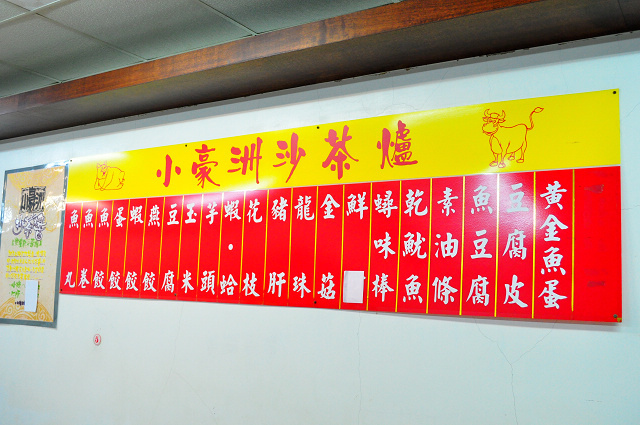 小豪洲沙茶爐
黃金魚蛋
豆腐皮
魚豆腐
素油條
乾魷魚
蟳味棒
鮮
金菇
龍珠
豬肝
花枝
蝦・蛤
芋頭
玉米
豆腐
燕餃
蝦餃
蛋餃
魚餃
魚卷
魚丸